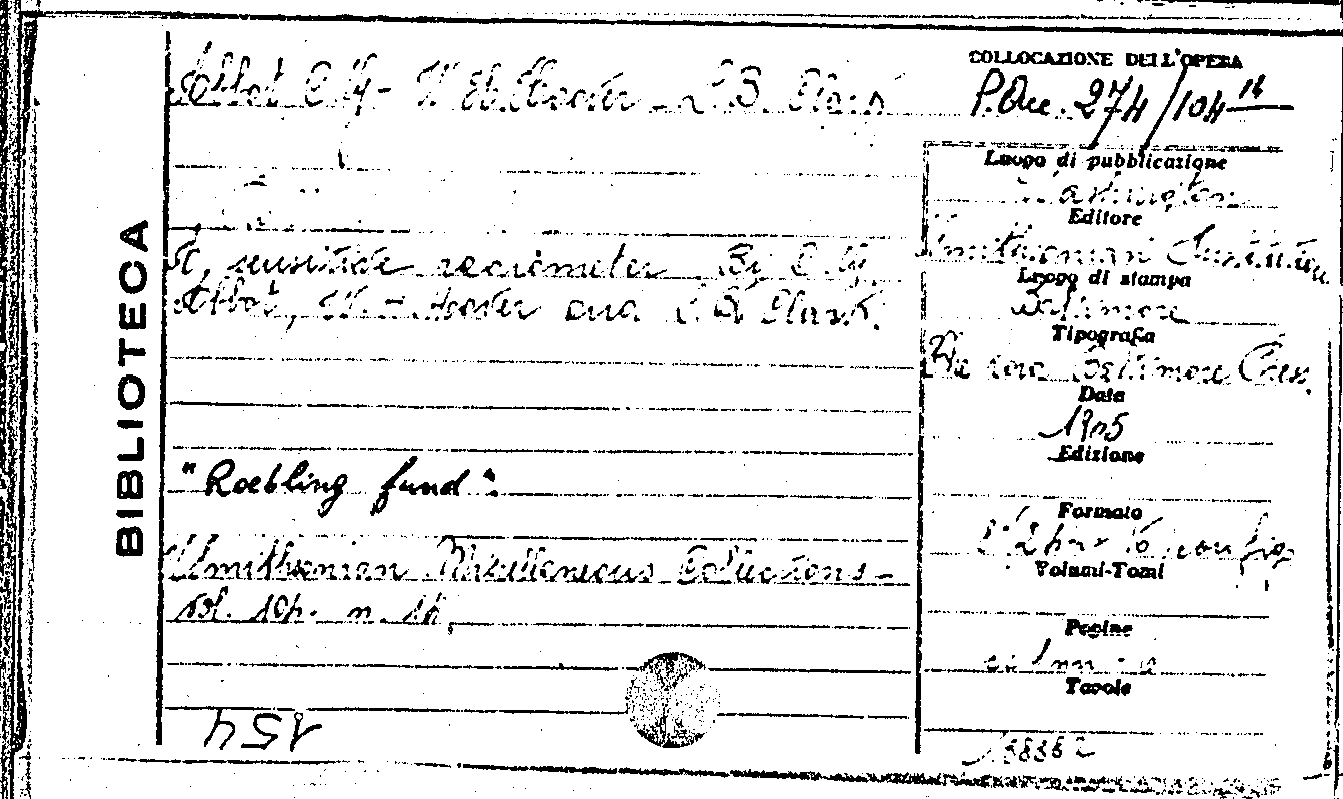 BIBLIOTECA
COLLOCAZIONE DELL'OPERA
Abbot C. G. - W. H. Hoover - L. B. Clark
P. Da. 274/104 14
Luogo di pubblicazione
Washington
Editore
Smithsonian Institution
A sensitive radiometer By C. G.
Abbot, W. H. Hoover and L. B. Clark.
Luogo di stampa
Baltimore
Tipografia
The Lord Baltimore Press
Data
1945
Edizione
"Roebling fund".
Formato
Smithsonian Miscellaneous Collections -
vol. 104. n. 14.
Volumi-Tomi
Pagine
Tavole
154
138362